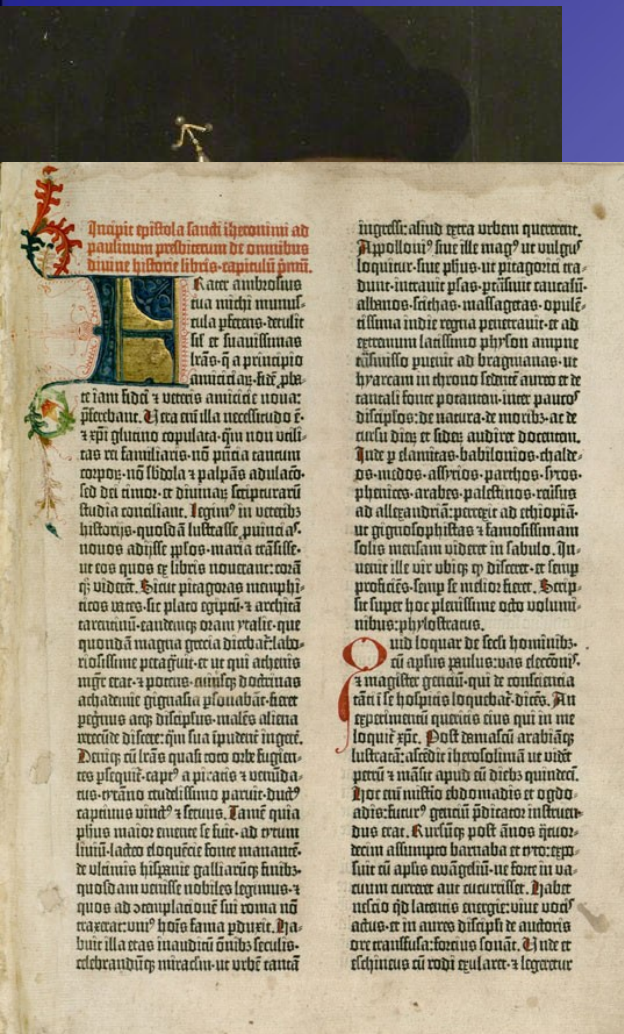 Incipit epistola sancti iheronimi ad
paulinum presbiterum de omnibus
divine historie libris·capitulū pmū.
Frater ambrosius
tua michi munus-
cula pferens·detulit
sil et suavissimas
lrās·q a principio
amiciciaꝝ·fidē pba-
te iam fidei ⁊ veteris amicicie noua:
pferebant. Vera eni illa necessitudo ē·
⁊ xpi glutino copulata·qm non vtili-
tas rei familiaris·nō pntia tantum
corpoꝝ·nō sbdola ⁊ palpās adulacō·
sed dei timor·et diuinaꝝ scripturarū
studia conciliant. Legimꝰ in veteribꝫ
historijs·quosdā lustrasse puincias·
nouos adijsse pplos·maria trāsisse·
ut eos quos ex libris nouerant: corā
qꝫ viderēt. Sicut pitagoras memphi-
ticos vates·sic plato egiptū·⁊ architā
tarentinū·eandemqꝫ oram ytalie·que
quondā magna grecia dicebat: labo-
riosissime peragrauit·et ut qui athenis
mgr erat·⁊ potens·cuiusqꝫ doctrinas
achademie gignasia psonabāt·fieret
peginus atqꝫ discipulus·malēs aliena
verecūde discere: qm sua īpudent ingere.
Deniqꝫ cū lrās quasi toto orbe fugien-
tes psequit·captꝰ a piratis ⁊ venūda-
tus·tyrāno crudelissimo paruit·ductꝰ
captiuus vinctꝰ ⁊ seruus. Tamē quia
phus maior emente se fuit·ad tytum
liuiū·lacteo eloquēcie fonte manantē·
de vltimis hispanie galliarūqꝫ finibꝫ·
quosdam venisse nobiles legimus·⁊
quos ad ɔtemplacionē sui roma nō
traxerat: vniꝰ hoīs fama pduxit. Ha-
buit illa etas inauditū omībꝫ seculis·
celebrandūqꝫ miraclm·ut vrbē tantā
ingressi: aliud extra vrbem quererent.
Appolloniꝰ siue ille magꝰ ut vulgus
loquitur·siue phus·ut pitagorici tra-
dunt·intrauit psas·ptrāsiuit caucasū·
albanos·scithas·massagetas·opulē-
tissima indie regna penetrauit·et ad
extremum latissimo physon ampne
trāsmisso puenit ad bragmanas·ut
hyarcam in throno sedentē aureo et de
tantali fonte potantem·inter paucos
discipulos: de natura·de moribꝫ·ac de
cursu dieꝝ et sideꝝ audiret docentem.
Inde p elamitas·babilonios·chalde-
os·medos·assyrios·parthos·syros·
phenices·arabes·palestinos·reuersus
ad allexandriā: perrexit ad ethiopiā·
ut gignosophistas ⁊ famosissimam
solis mensam videret in sabulo. In-
uenit ille vir vbiqꝫ qd disceret·et semp
proficiēs·semp se melior fieret. Scrip-
sit super hoc plenissime octo volumi-
nibus: phylostratus.
Quid loquar de seculi hominibꝫ·
cū apostolus paulus: vas eleccōnis·
⁊ magister genciū·qui de consciencia
tāti ī se hospitis loquebat·dicēs. An
experimentū queritis eius qui in me
loquit xpc. Post damascū arabiāqꝫ
lustratā: ascēdit iherosolimā ut videt
petrū ⁊ māsit apud eū diebꝫ quindeci.
Hoc enī misterio ebdomadis et ogdo-
adis: futurꝰ genciū pdicator instruen-
dus erat. Rursūqꝫ post ānos qtuor-
decim assumpto barnaba et tyto: expo-
suit cū apostolis ewāgeliū·ne forte in va-
cuum curreret aut cucurrisset. Habet
nescio qd latentis energie: viue vocis
actus·et in aures discipuli de auctoris
ore transfusa: forcius sonat. Unde et
eschineus cū rodi exularet·⁊ legeretur